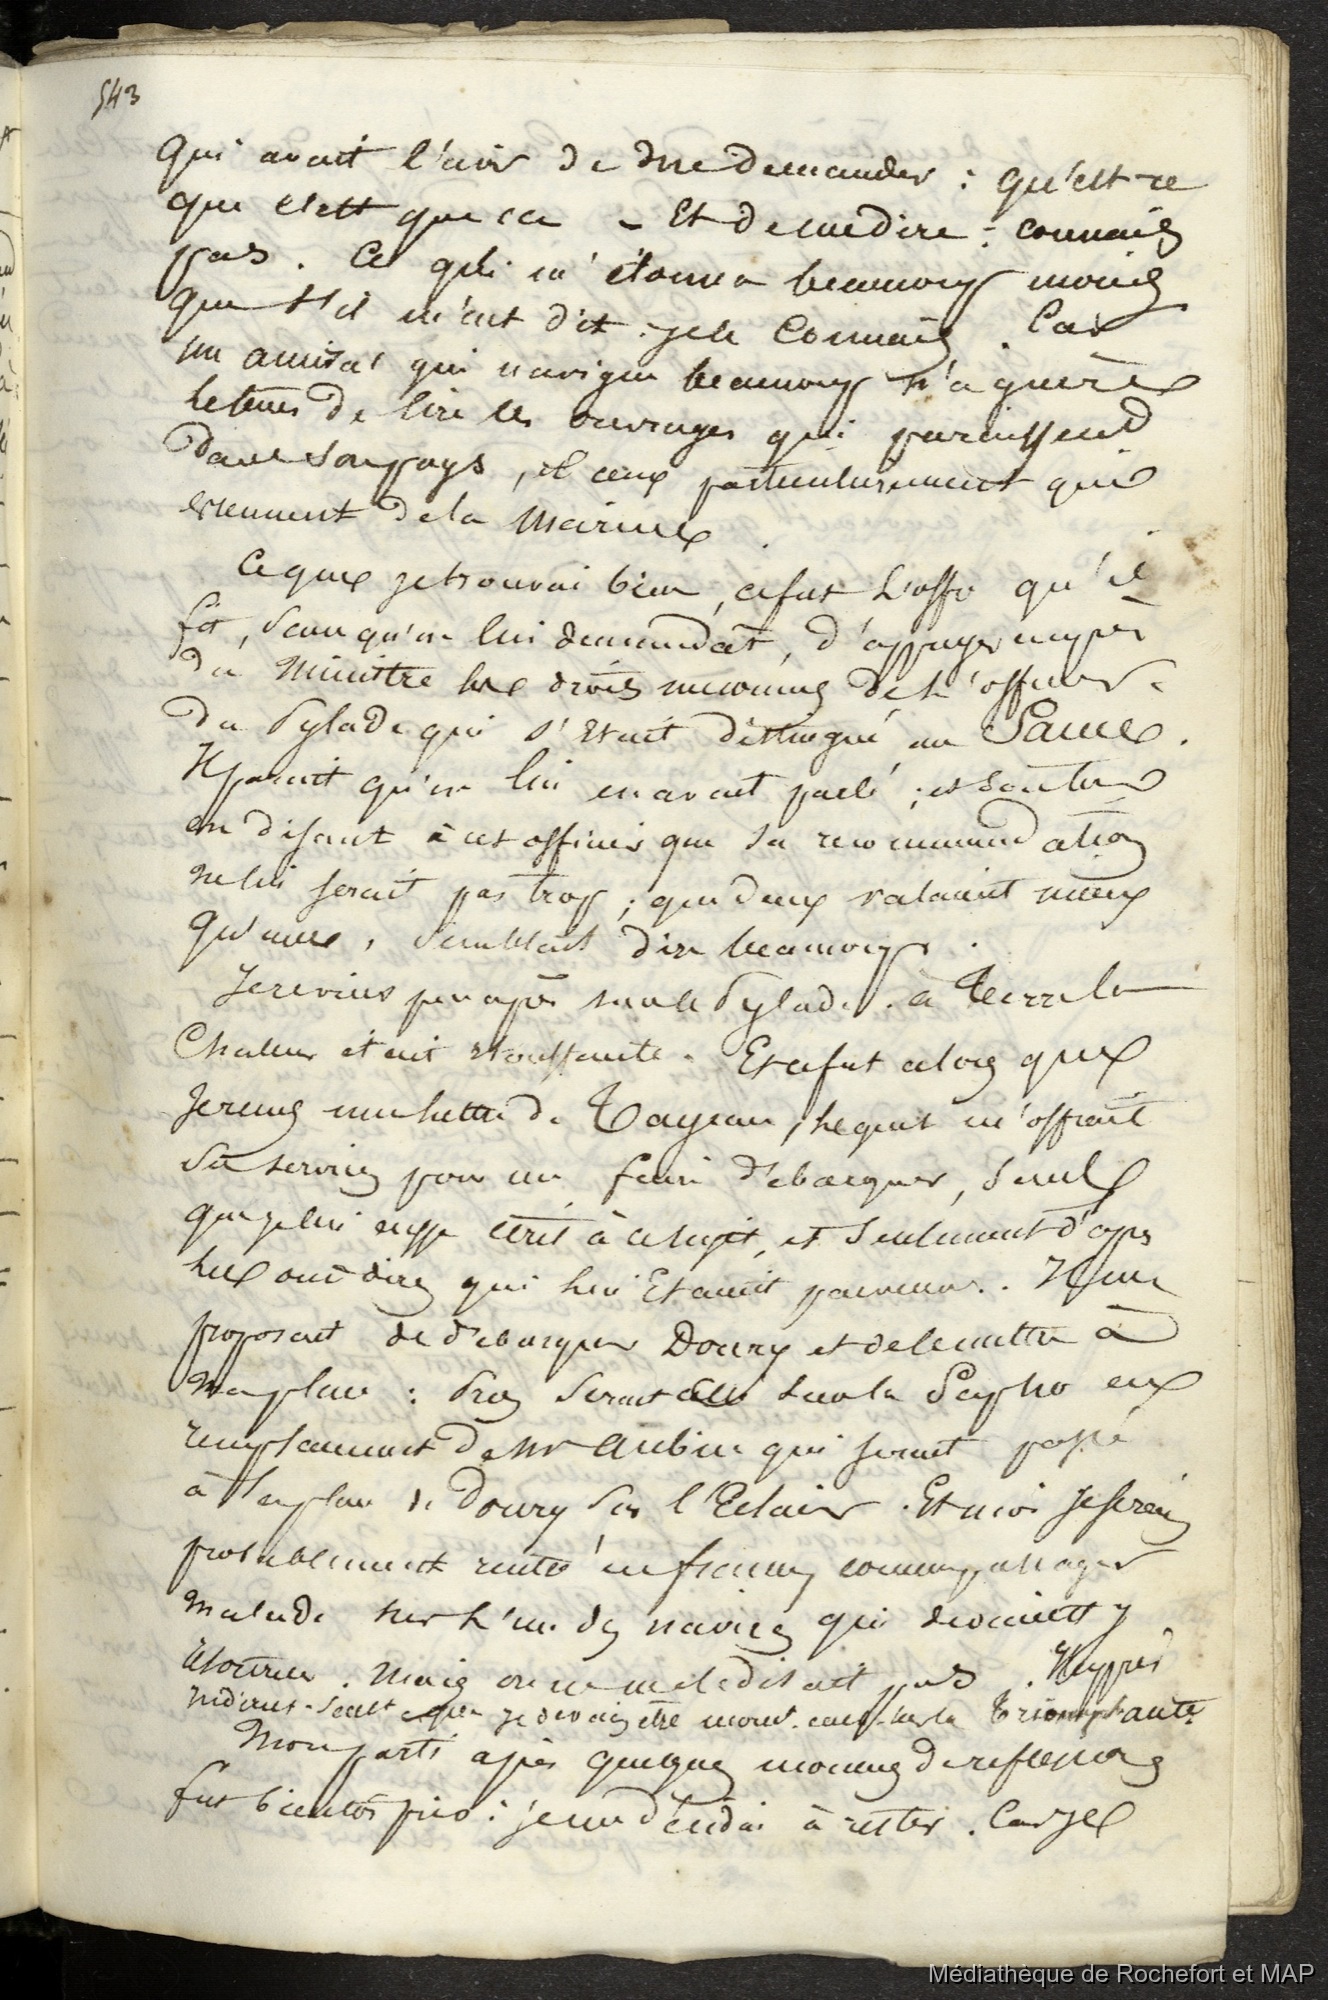 543
qui avait l'air de me demander : qu'est-ce
que c'est que ça – Et de me dire : connais
pas. Ce qui m'étonna beaucoup moins
que s'il m'eut dit : je le connais. Car
un amiral qui navigue beaucoup n'a guère
le tems de lire les ouvrages qui paraissent
dans son pays, et ceux particulièrement qui
viennent de la marine.
Ce que je trouvai bien, ce fut l'offre qu'il
fit, sans qu'on lui demandât, d'appuyer auprès
du Ministre les droits méconnus de l'officier
du Pylade qui s'était distingué au
Il parait qu'on lui en avait parlé ;
en disant à cet officier que sa recommandation
ne lui serait pas trop ; que deux valaient mieux
qu'une, semblait dire beaucoup.
Je revins peu après sur le Pylade. à terre la
chaleur était étouffante. Et ce fut alors que
je reçus une lettre de Tayeau, lequel m'offrait
ses services pour me faire débarquer, sans
que je lui eusse écrit à ce sujet, et seulement d'après
les ouï dires qui lui étaient parvenus. Il me
proposait de débarquer Doury et de le mettre à
ma place : Pros serait allé sur la Sapho en
remplacement de Mr Aubin qui serait passé
à la place de Doury sur l'Eclair. Et moi je serais
probablement rentré en france comme passager
malade sur l'un des navires qui devaient y
retourner. Mais on ne me le disait pas. Huppré
m'écrit seult que je devais être mont. sur la Triomphante
Mon parti après quelques momens de réflexions
fut bientôt pris : je me décidai à rester. Car je